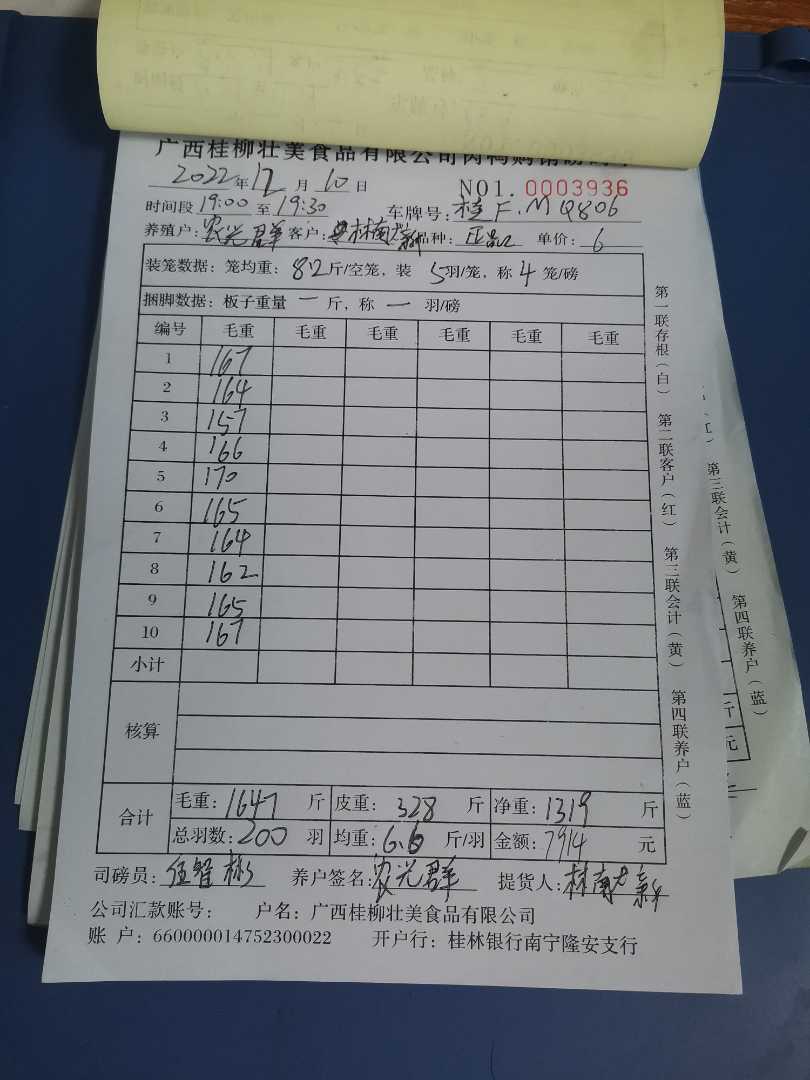 广西桂柳壮美食品有限公司肉鸭购销
2022年12月10日 NO1.0003936
时间段19:00至19:30 车牌号:桂F.MQ806
养殖户:农光群 客户:林南 品种: 单价:6
装笼数据:笼均重:8.2斤/空笼,装5羽/笼,称4笼/磅
捆脚数据:板子重量一斤,称一羽/磅
编号 毛重 毛重 毛重 毛重 毛重 毛重
1 167
2 164
3 157
4 166
5 170
6 165
7 164
8 162
9 165
10 167
小计
核算
合计 毛重:1647斤 皮重:328斤 净重:1319斤
总羽数:200羽 均重:6.6斤/羽 金额:7914元
司磅员:伍智彬 养户签名:农光群 提货人:林南
公司汇款账号: 户名:广西桂柳壮美食品有限公司
账 户:660000014752300022 开户行:桂林银行南宁隆安支行
第一联存根(白) 第二联客户(红) 第三联会计(黄) 第四联养户(蓝)
第三联会计(黄) 第四联养户(蓝)
斤
元